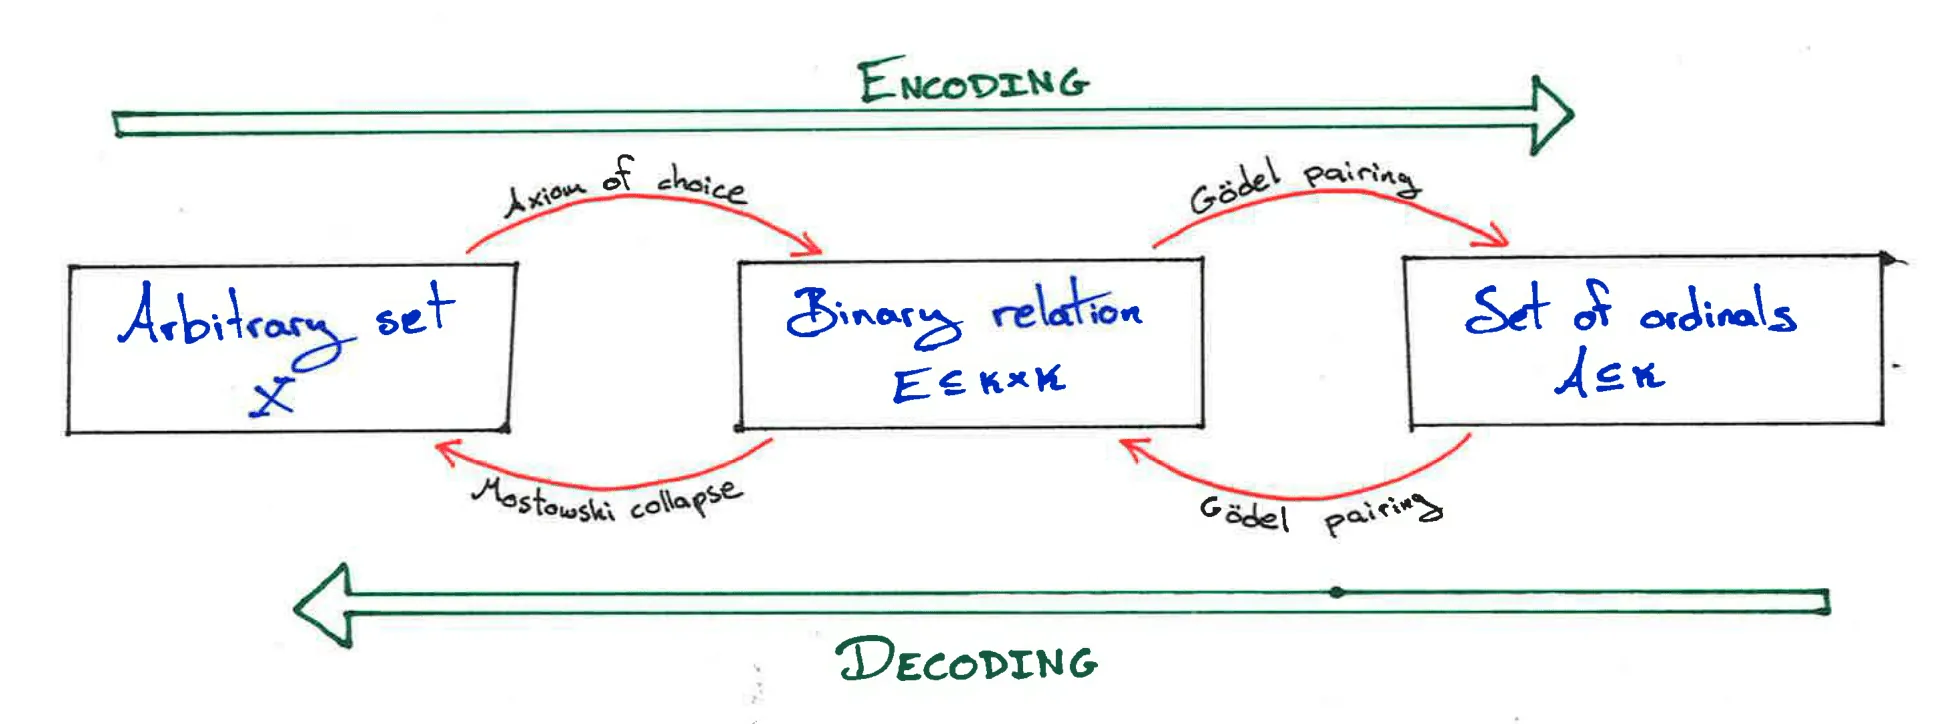 ENCODING
Axiom of choice
Gödel pairing
Arbitrary set
X
Binary relation
E ⊆ κ×κ
Set of ordinals
A ⊆ κ
Mostowski collapse
Gödel pairing
DECODING